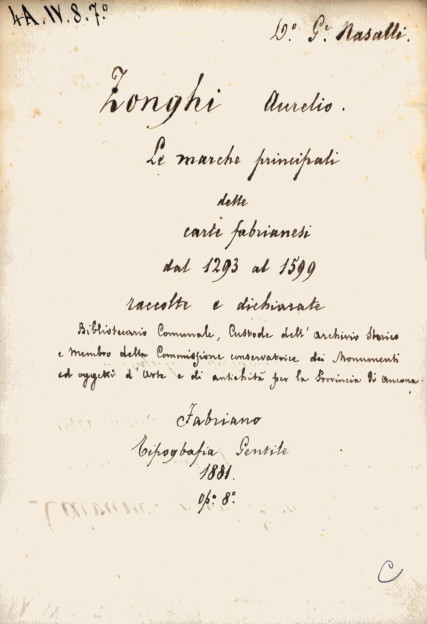 4A.IV.8.7.º
Dº. Gº. Nasalli.
Zonghi Aurelio.
Le marche principali
delle
carte fabrianesi
dal 1293 al 1599
raccolte e dichiarate
Bibliotecario Comunale, Custode dell' Archivio Storico
e Membro della Commissione conservatrice dei Monumenti
ed oggetti d'Arte e di antichità per la Provincia di Ancona.
Fabriano
Tipografia Gentile
1881.
Opº. 8º.
C